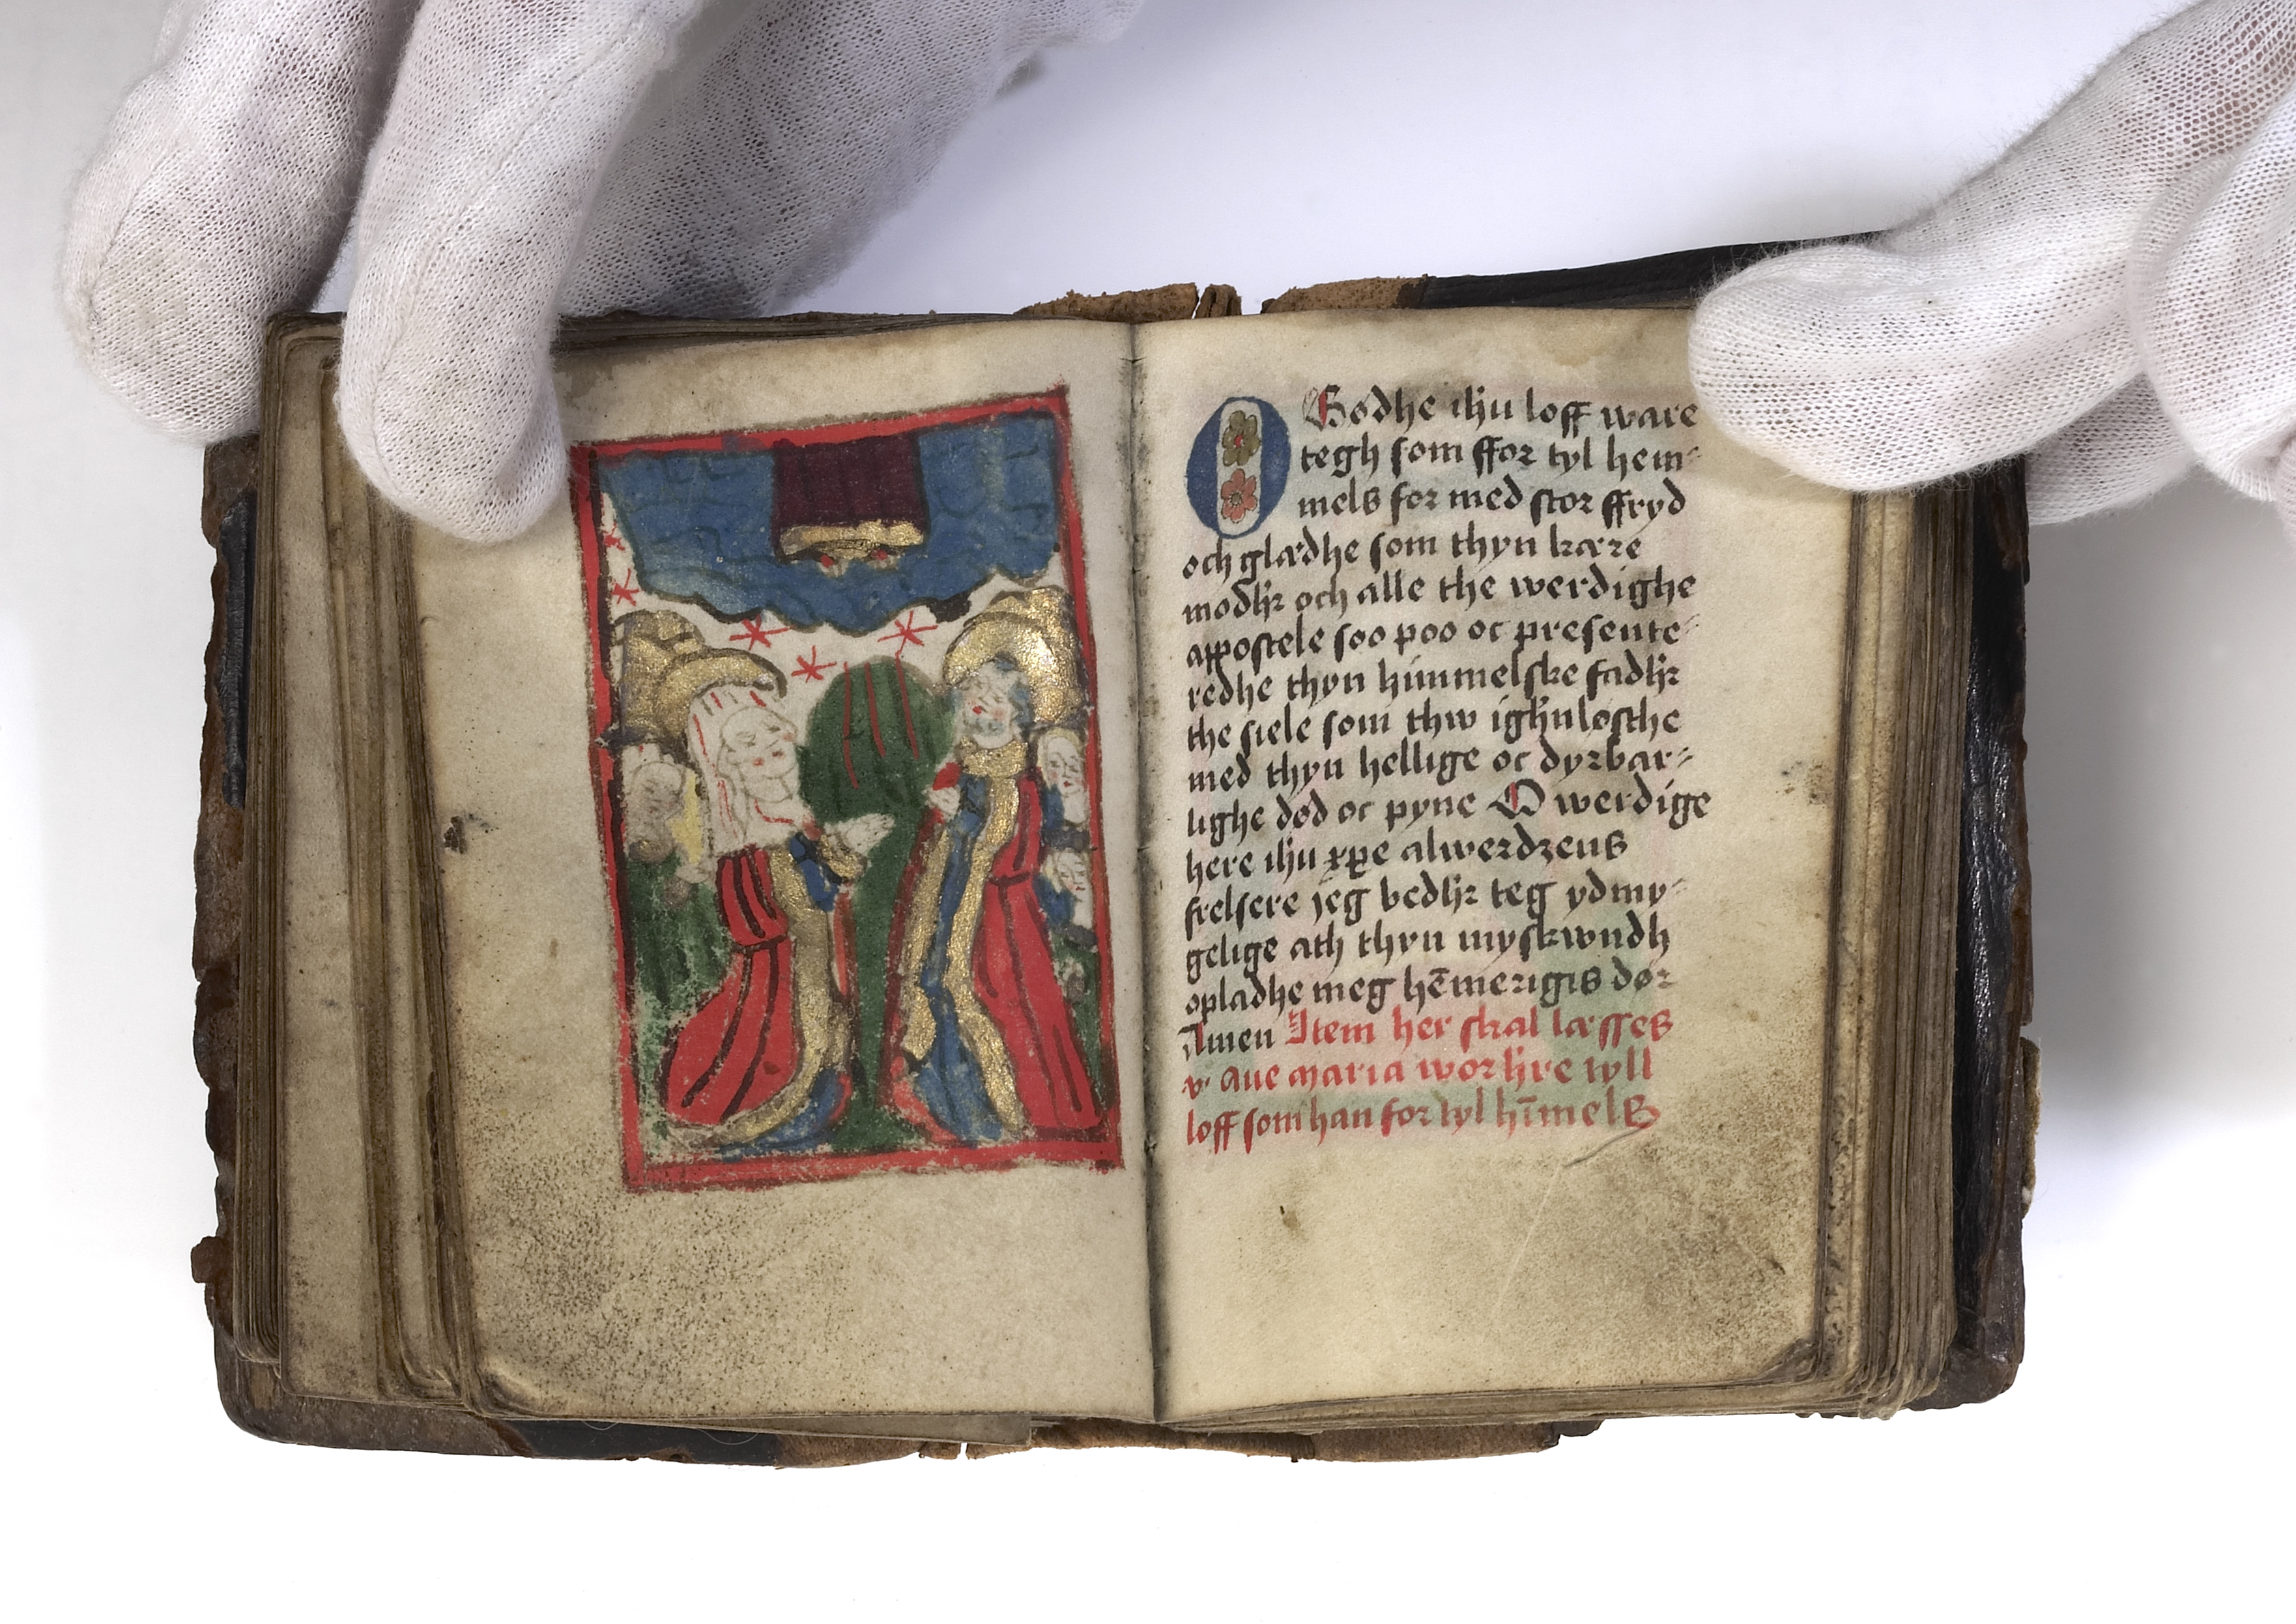 O Godhe ihu loff ware
tegh som ffor tyl hem-
mels for med stor ffryd
och glædhe som thyn kære
modhr och alle the werdighe
appostele soo poo oc presente-
redhe thyn himmelske fadhr
the siele som thw ighnlosthe
med thyn hellige oc dyrbar-
lighe dod oc pyne O werdige
here ihu xpe alwerdzens
frelsere jeg bedhr teg ydmy-
gelige ath thyn myskwndh
opladhe meg hēmerigis dør
Amen Item her skal læsses
v aue maria worhre tyll
loff som han for tyl hīmels